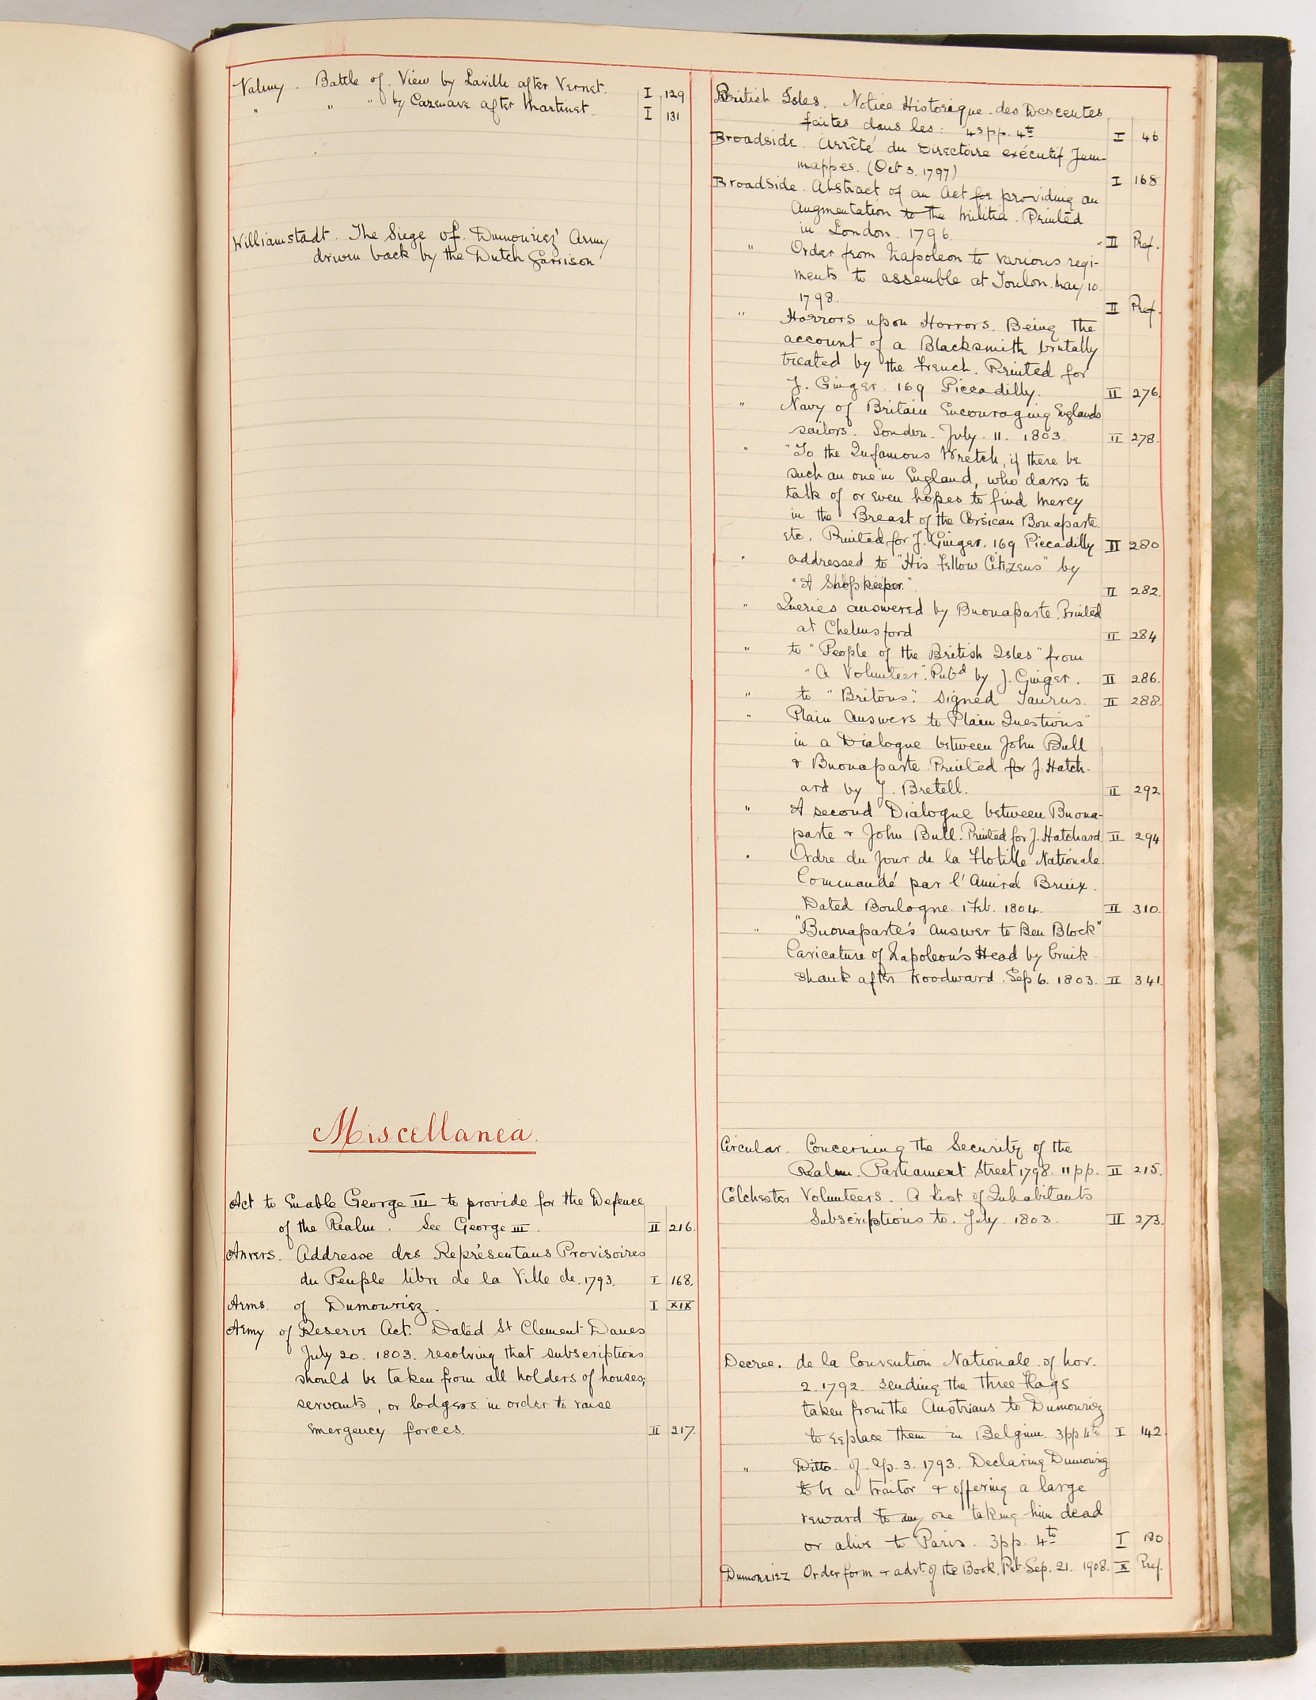 Valmy. Battle of. View by Laville after Vernet. I 129
" " " by Cazenave after Martinet. I 131
Williamstadt. The Siege of. Dumouriez' Army
driven back by the Dutch Garrison
Miscellanea.
Act to Enable George III to provide for the Defence
of the Realm. See George III. II 216.
Anvers. Addresse des Représentans Provisoires
du Peuple libre de la Ville de. 1793. I 168.
Arms. of Dumouriez. I XIX
Army of Reserve Act. Dated St Clement Danes
July 20. 1803. resolving that subscriptions
should be taken from all holders of houses,
servants, or lodgers in order to raise
emergency forces. II 217.
British Isles. Notice Historique des Descentes
faites dans les. 43 pp. 4to I 46
Broadside. Arrêté du Directoire exécutif Jem-
mappes. (Oct 3. 1797) I 168
Broadside. Abstract of an Act for providing an
Augmentation to the Militia. Printed
in London. 1796. II Pref.
" Order from Napoleon to various regi-
ments to assemble at Toulon. May 10.
1798. II Pref.
" Horrors upon Horrors. Being the
account of a Blacksmith brutally
treated by the French. Printed for
J. Ginger. 169 Piccadilly. II 276.
" Navy of Britain Encouraging Englands
sailors. London. July. 11. 1803. II 278.
" "To the Infamous Wretch, if there be
such an one in England, who dares to
talk of or even hopes to find Mercy
in the Breast of the Corsican Bonaparte.
etc. Printed for J. Ginger. 169 Piccadilly II 280
" addressed to "His Fellow Citizens" by
"A Shopkeeper." II 282.
" Queries answered by Buonaparte. Printed
at Chelmsford II 284
" to "People of the British Isles" from
"A Volunteer". Pubd by J. Ginger. II 286.
" to "Britons". signed Taurus. II 288.
" Plain Answers to Plain Questions"
in a Dialogue between John Bull
& Buonaparte. Printed for J. Hatch-
ard by J. Bretell. II 292
" A second Dialogue between Buona-
parte & John Bull. Printed for J. Hatchard II 294
" Ordre du Jour de la Flotille Nationale.
Commandé par l'Amiral Bruix.
Dated Boulogne. 1 Feb. 1804. II 310.
" "Buonaparte's Answer to Ben Block"
Caricature of Napoleon's Head by Cruik-
shank after Woodward. Sep 6. 1803. II 341.
Circular. Concerning the Security of the
Realm. Parliament Street 1798. 11 pp. II 215.
Colchester Volunteers. A list of Inhabitants
Subscriptions to. July. 1803. II 273.
Decree. de la Convention Nationale. of Nov.
2. 1792. sending the Three flags
taken from the Austrians to Dumouriez
to replace them in Belgium. 3 pp 4to I 142
" Ditto. of Ap. 3. 1793. Declaring Dumouriez
to be a traitor & offering a large
reward to any one taking him dead
or alive to Paris. 3 pp. 4to I
Dumouriez Order form & advt of the Book. Pub Sep. 21. 1908. Pref.